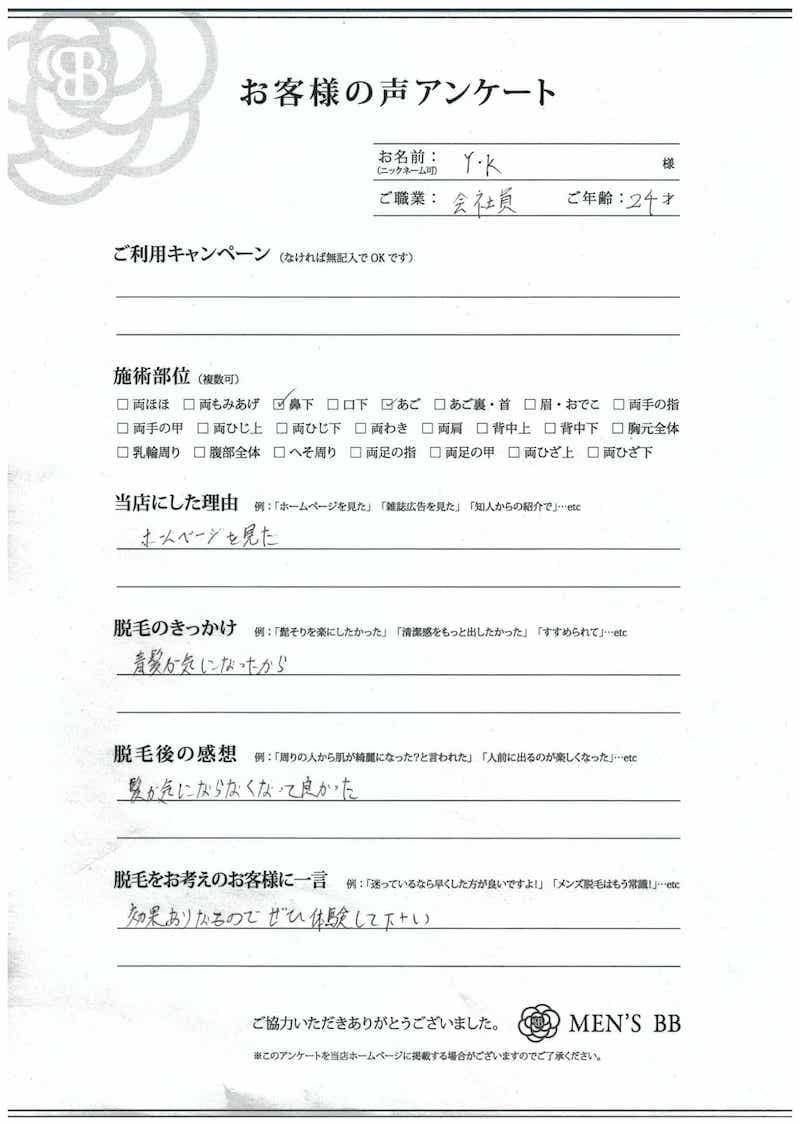 BB
お客様の声アンケート
お名前： Y.K 様
(ニックネーム可)
ご職業： 会社員 ご年齢：24才
ご利用キャンペーン (なければ無記入でOKです)
施術部位 (複数可)
□両ほほ □両もみあげ ☑鼻下 □口下 ☑あご □あご裏・首 □眉・おでこ □両手の指
□両手の甲 □両ひじ上 □両ひじ下 □両わき □両肩 □背中上 □背中下 □胸元全体
□乳輪周り □腹部全体 □へそ周り □両足の指 □両足の甲 □両ひざ上 □両ひざ下
当店にした理由 例：「ホームページを見た」「雑誌広告を見た」「知人からの紹介で」…etc
ホームページを見た
脱毛のきっかけ 例：「髭そりを楽にしたかった」「清潔感をもっと出したかった」「すすめられて」…etc
青髭が気になったから
脱毛後の感想 例：「周りの人から肌が綺麗になった？と言われた」「人前に出るのが楽しくなった」…etc
髭が気にならなくなって良かった
脱毛をお考えのお客様に一言 例：「迷っているなら早くした方が良いですよ！」「メンズ脱毛はもう常識！」…etc
効果ありなのでぜひ体験して下さい
ご協力いただきありがとうございました。 MEN'S BB
※このアンケートを当店ホームページに掲載する場合がございますのでご了承ください。